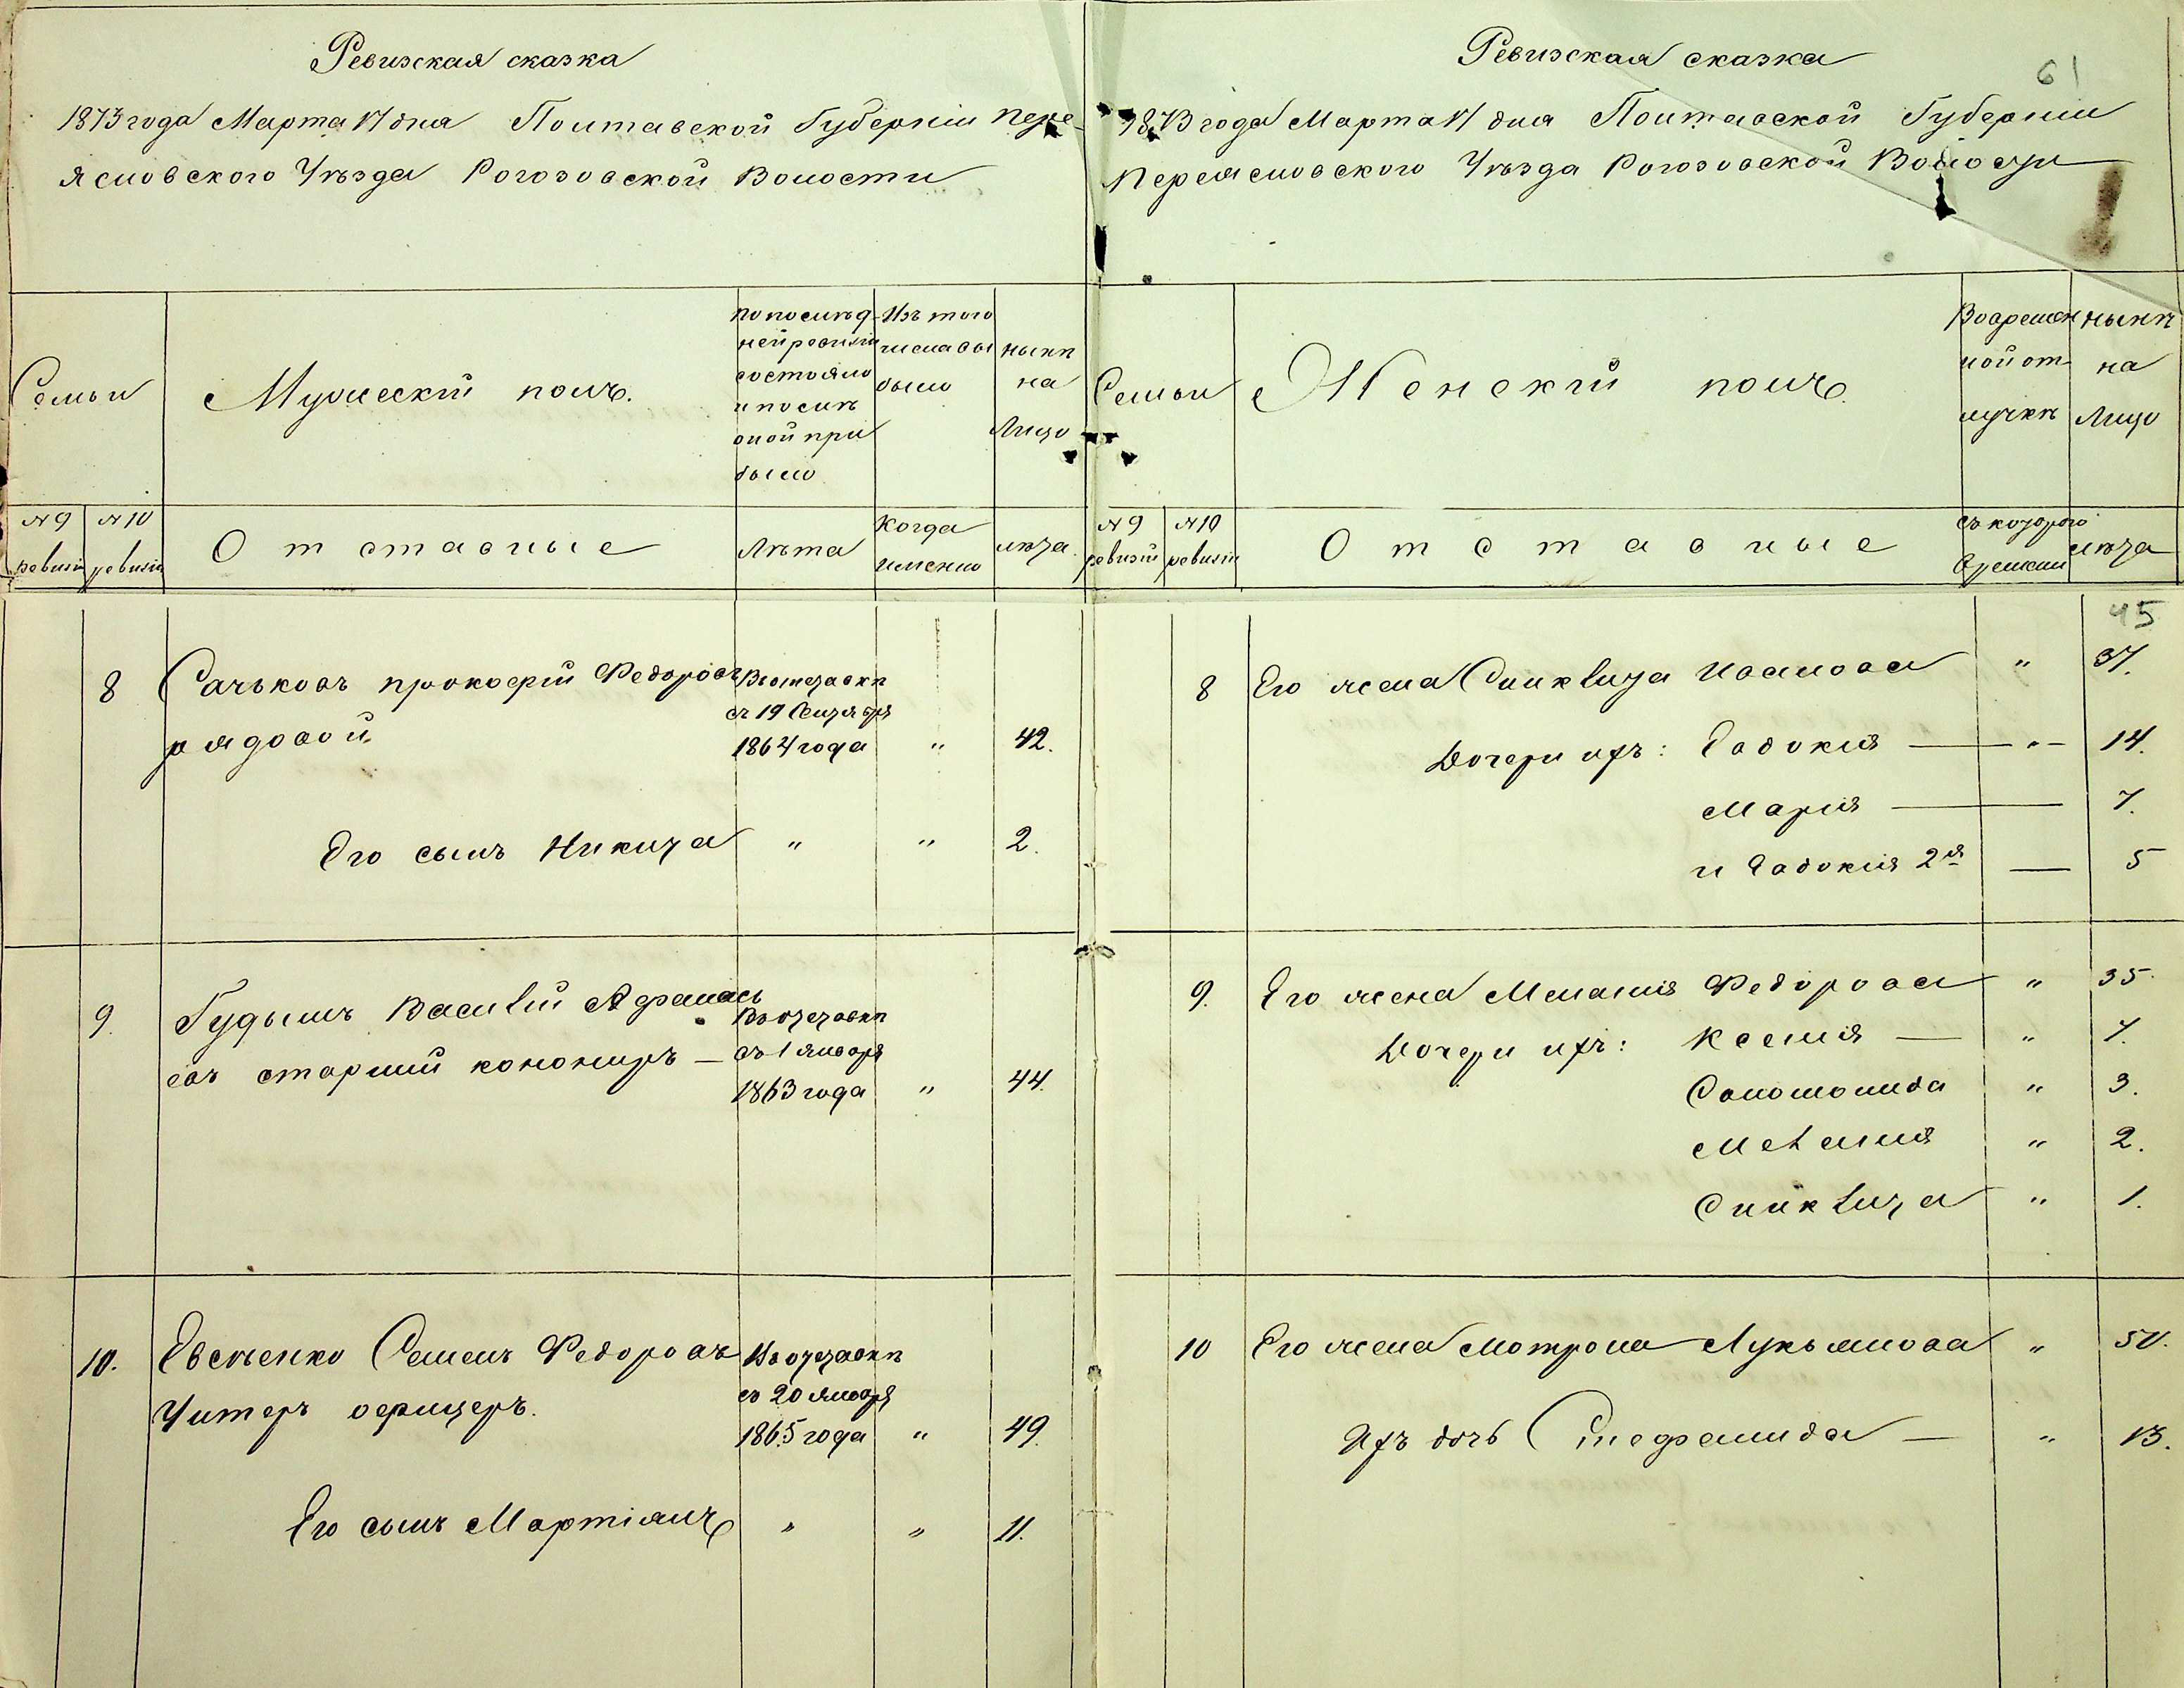 Ревизская сказка
1873 года Марта 17 дня Полтавской Губерніи Пере-
яславского Уѣзда Рогозовской Волости
Семьи
Мужескій полъ.
по послѣд-
ней ревизіи
состояло
и послѣ
оной при
было
Изъ того
числа вы
было
нынѣ
на
Лицо
№ 9
ревизіи
№ 10
ревизіи
Отставные
Лѣта
когда
именно
лѣта.
8 Сачьковъ Прокофій Федоровъ Въ отставкѣ
съ 19 Сентября
рядовой. 1864 года " 42.
Его сынъ Никита " " 2.
9. Гудымъ Василій Афанась
Въ отставкѣ
евъ старшій канониръ — съ 1 января
1863 года " 44.
10. Евсченко Семенъ Федоровъ Въ отставкѣ
съ 20 января
Унтеръ офицеръ. 1865 года " 49.
Его сынъ Мартіянъ " " 11.
Ревизская сказка
61
1873 года Марта 17 дня Полтавской Губерніи
Переяславского Уѣзда Рогозовской Волости
Семьи
Женскій полъ.
Во времен
ной от
лучкѣ
нынѣ
на
Лицо
№ 9
ревизіи
№ 10
ревизіи
Отставные
съ которого
времени
лѣта
45
8 Его жена Синклита Иванова " 37.
Дочери ихъ: Евдокія — " — 14.
Марія — 7.
и Евдокія 2я — 5
9. Его жена Меланія Федорова " 35.
Дочери ихъ: Ксенія — " 7.
Соломонида " 3.
Меланія " 2.
Синклита " 1.
10 Его жена Мотрона Лукьянова " 50.
Ихъ дочь Стефанида — " 13.